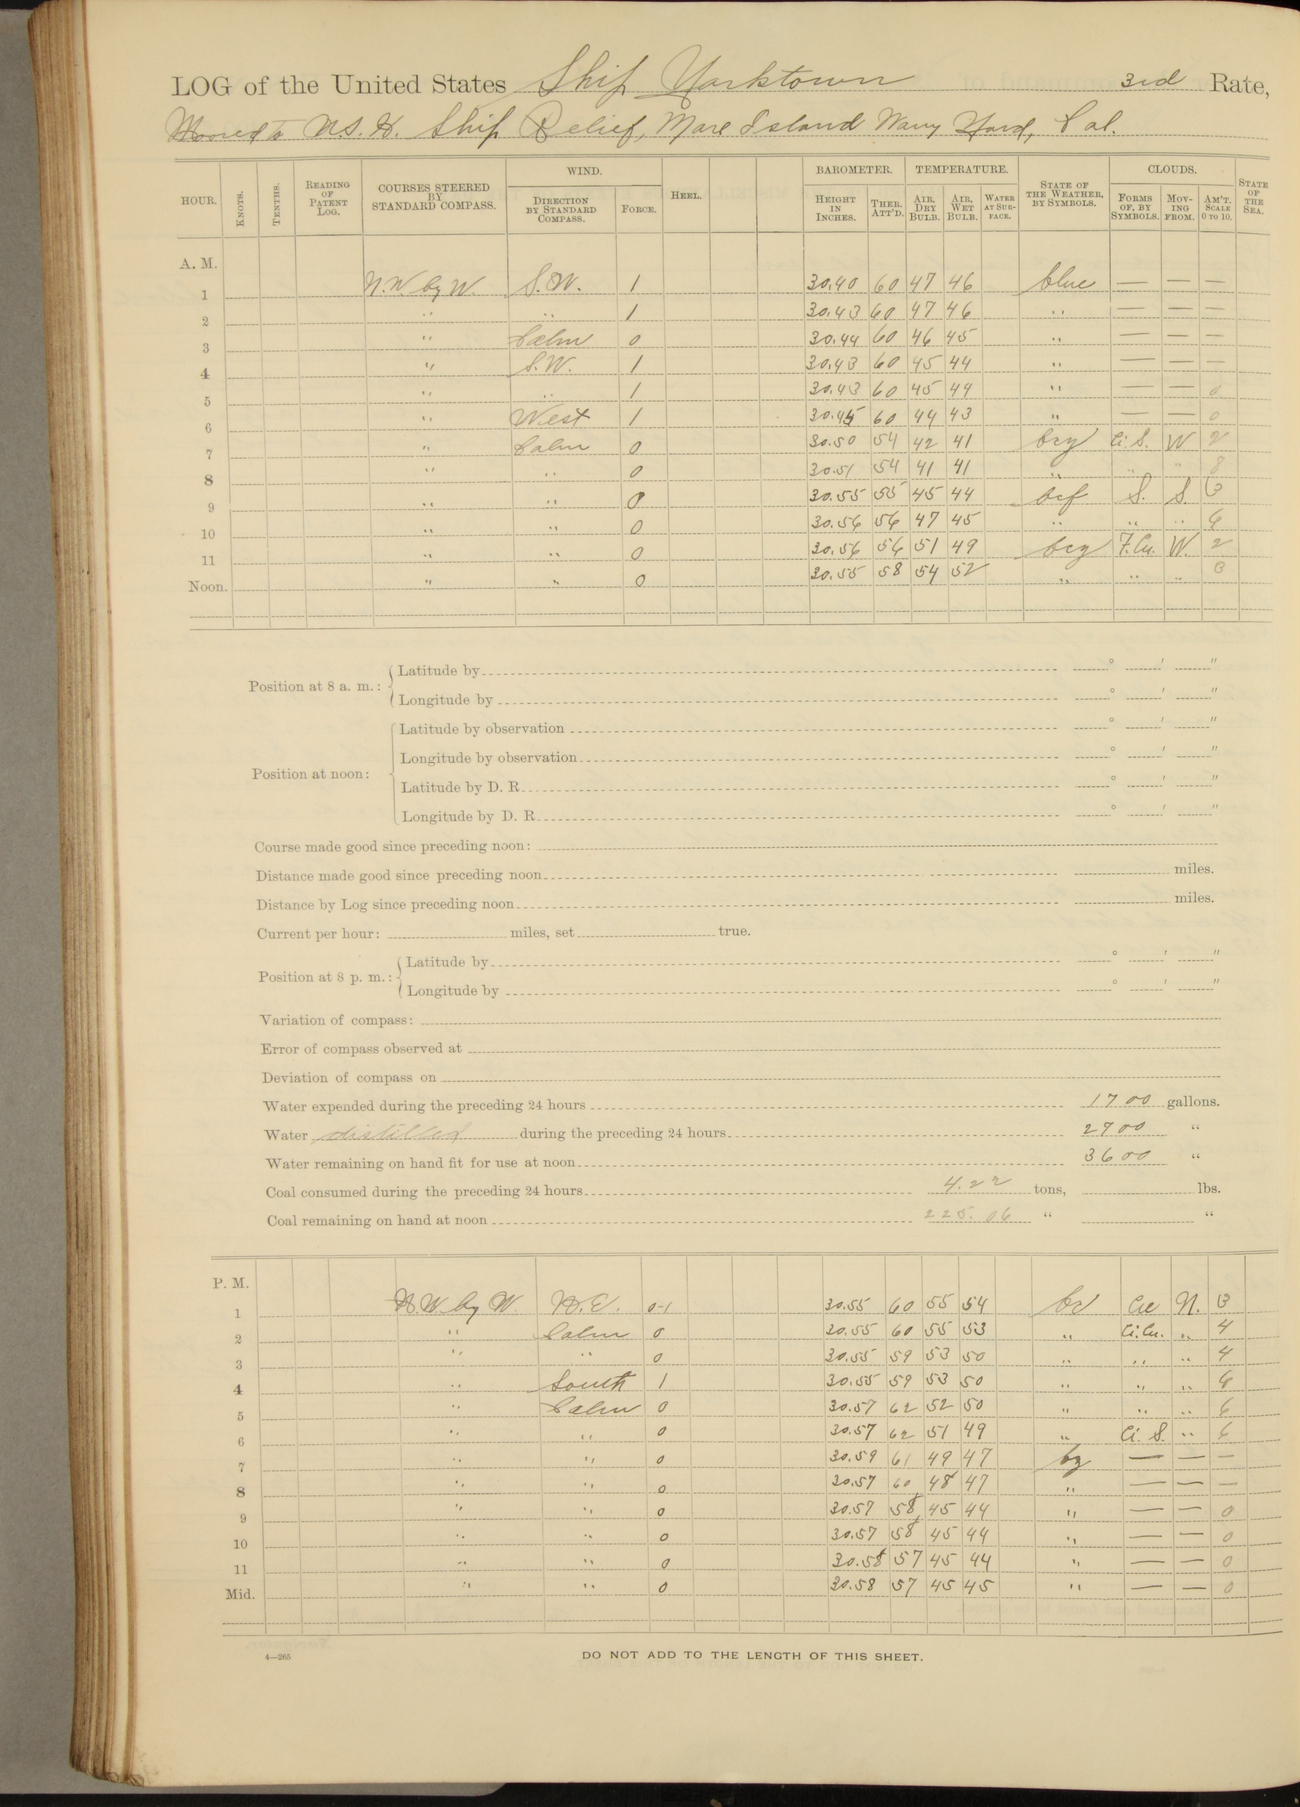 LOG of the United States Ship Yorktown 3rd Rate,
Moored to U.S. H. Ship Relief, Mare Island Navy Yard, Cal.
HOUR. KNOTS. TENTHS. READING OF PATENT LOG. COURSES STEERED BY STANDARD COMPASS. WIND. DIRECTION BY STANDARD COMPASS. FORCE. HEEL. BAROMETER. HEIGHT IN INCHES. THER. ATT'D. TEMPERATURE. AIR, DRY BULB. AIR, WET BULB. WATER AT SUR-FACE. STATE OF THE WEATHER, BY SYMBOLS. CLOUDS. FORMS OF, BY SYMBOLS. MOV-ING FROM. AM'T. SCALE 0 TO 10. STATE OF THE SEA.
A. M.
1 N.W. by W. S.W. 1 30.40 60 47 46 blue — — —
2 " " 1 30.43 60 47 46 " — — —
3 " Calm 0 30.44 60 46 45 " — — —
4 " S.W. 1 30.43 60 45 44 " — — —
5 " " 1 30.43 60 45 44 " — — 0
6 " West 1 30.45 60 44 43 " — — 0
7 " Calm 0 30.50 54 42 41 bcy Ci. S. W 2
8 " " 0 30.51 54 41 41 " " " 8
9 " " 0 30.55 55 45 44 bcf S. S. 3
10 " " 0 30.56 56 47 45 " " " 6
11 " " 0 30.56 56 51 49 bcy F.Cu. W. 2
Noon. " " 0 30.55 58 54 52 " " " 3
Position at 8 a. m.: Latitude by ° ' "
Longitude by ° ' "
Position at noon: Latitude by observation ° ' "
Longitude by observation ° ' "
Latitude by D. R. ° ' "
Longitude by D. R. ° ' "
Course made good since preceding noon:
Distance made good since preceding noon miles.
Distance by Log since preceding noon miles.
Current per hour: miles, set true.
Position at 8 p. m.: Latitude by ° ' "
Longitude by ° ' "
Variation of compass:
Error of compass observed at
Deviation of compass on
Water expended during the preceding 24 hours 1700 gallons.
Water distilled during the preceding 24 hours 2900 "
Water remaining on hand fit for use at noon 3600 "
Coal consumed during the preceding 24 hours 4.22 tons, lbs.
Coal remaining on hand at noon 225.06 " "
P. M.
1 N.W. by W. N.E. 0-1 30.55 60 55 54 bc Cu N. 3
2 " Calm 0 30.55 60 55 53 " Ci.Cu. " 4
3 " " 0 30.55 59 53 50 " " " 4
4 " South 1 30.55 59 53 50 " " " 6
5 " Calm 0 30.57 62 52 50 " " " 6
6 " " 0 30.57 62 51 49 " Ci. S. " 6
7 " " 0 30.59 61 49 47 bz — — —
8 " " 0 30.57 60 48 47 " — — —
9 " " 0 30.57 58 45 44 " — — 0
10 " " 0 30.57 58 45 44 " — — 0
11 " " 0 30.58 57 45 44 " — — 0
Mid. " " 0 30.58 57 45 45 " — — 0
4—265
DO NOT ADD TO THE LENGTH OF THIS SHEET.